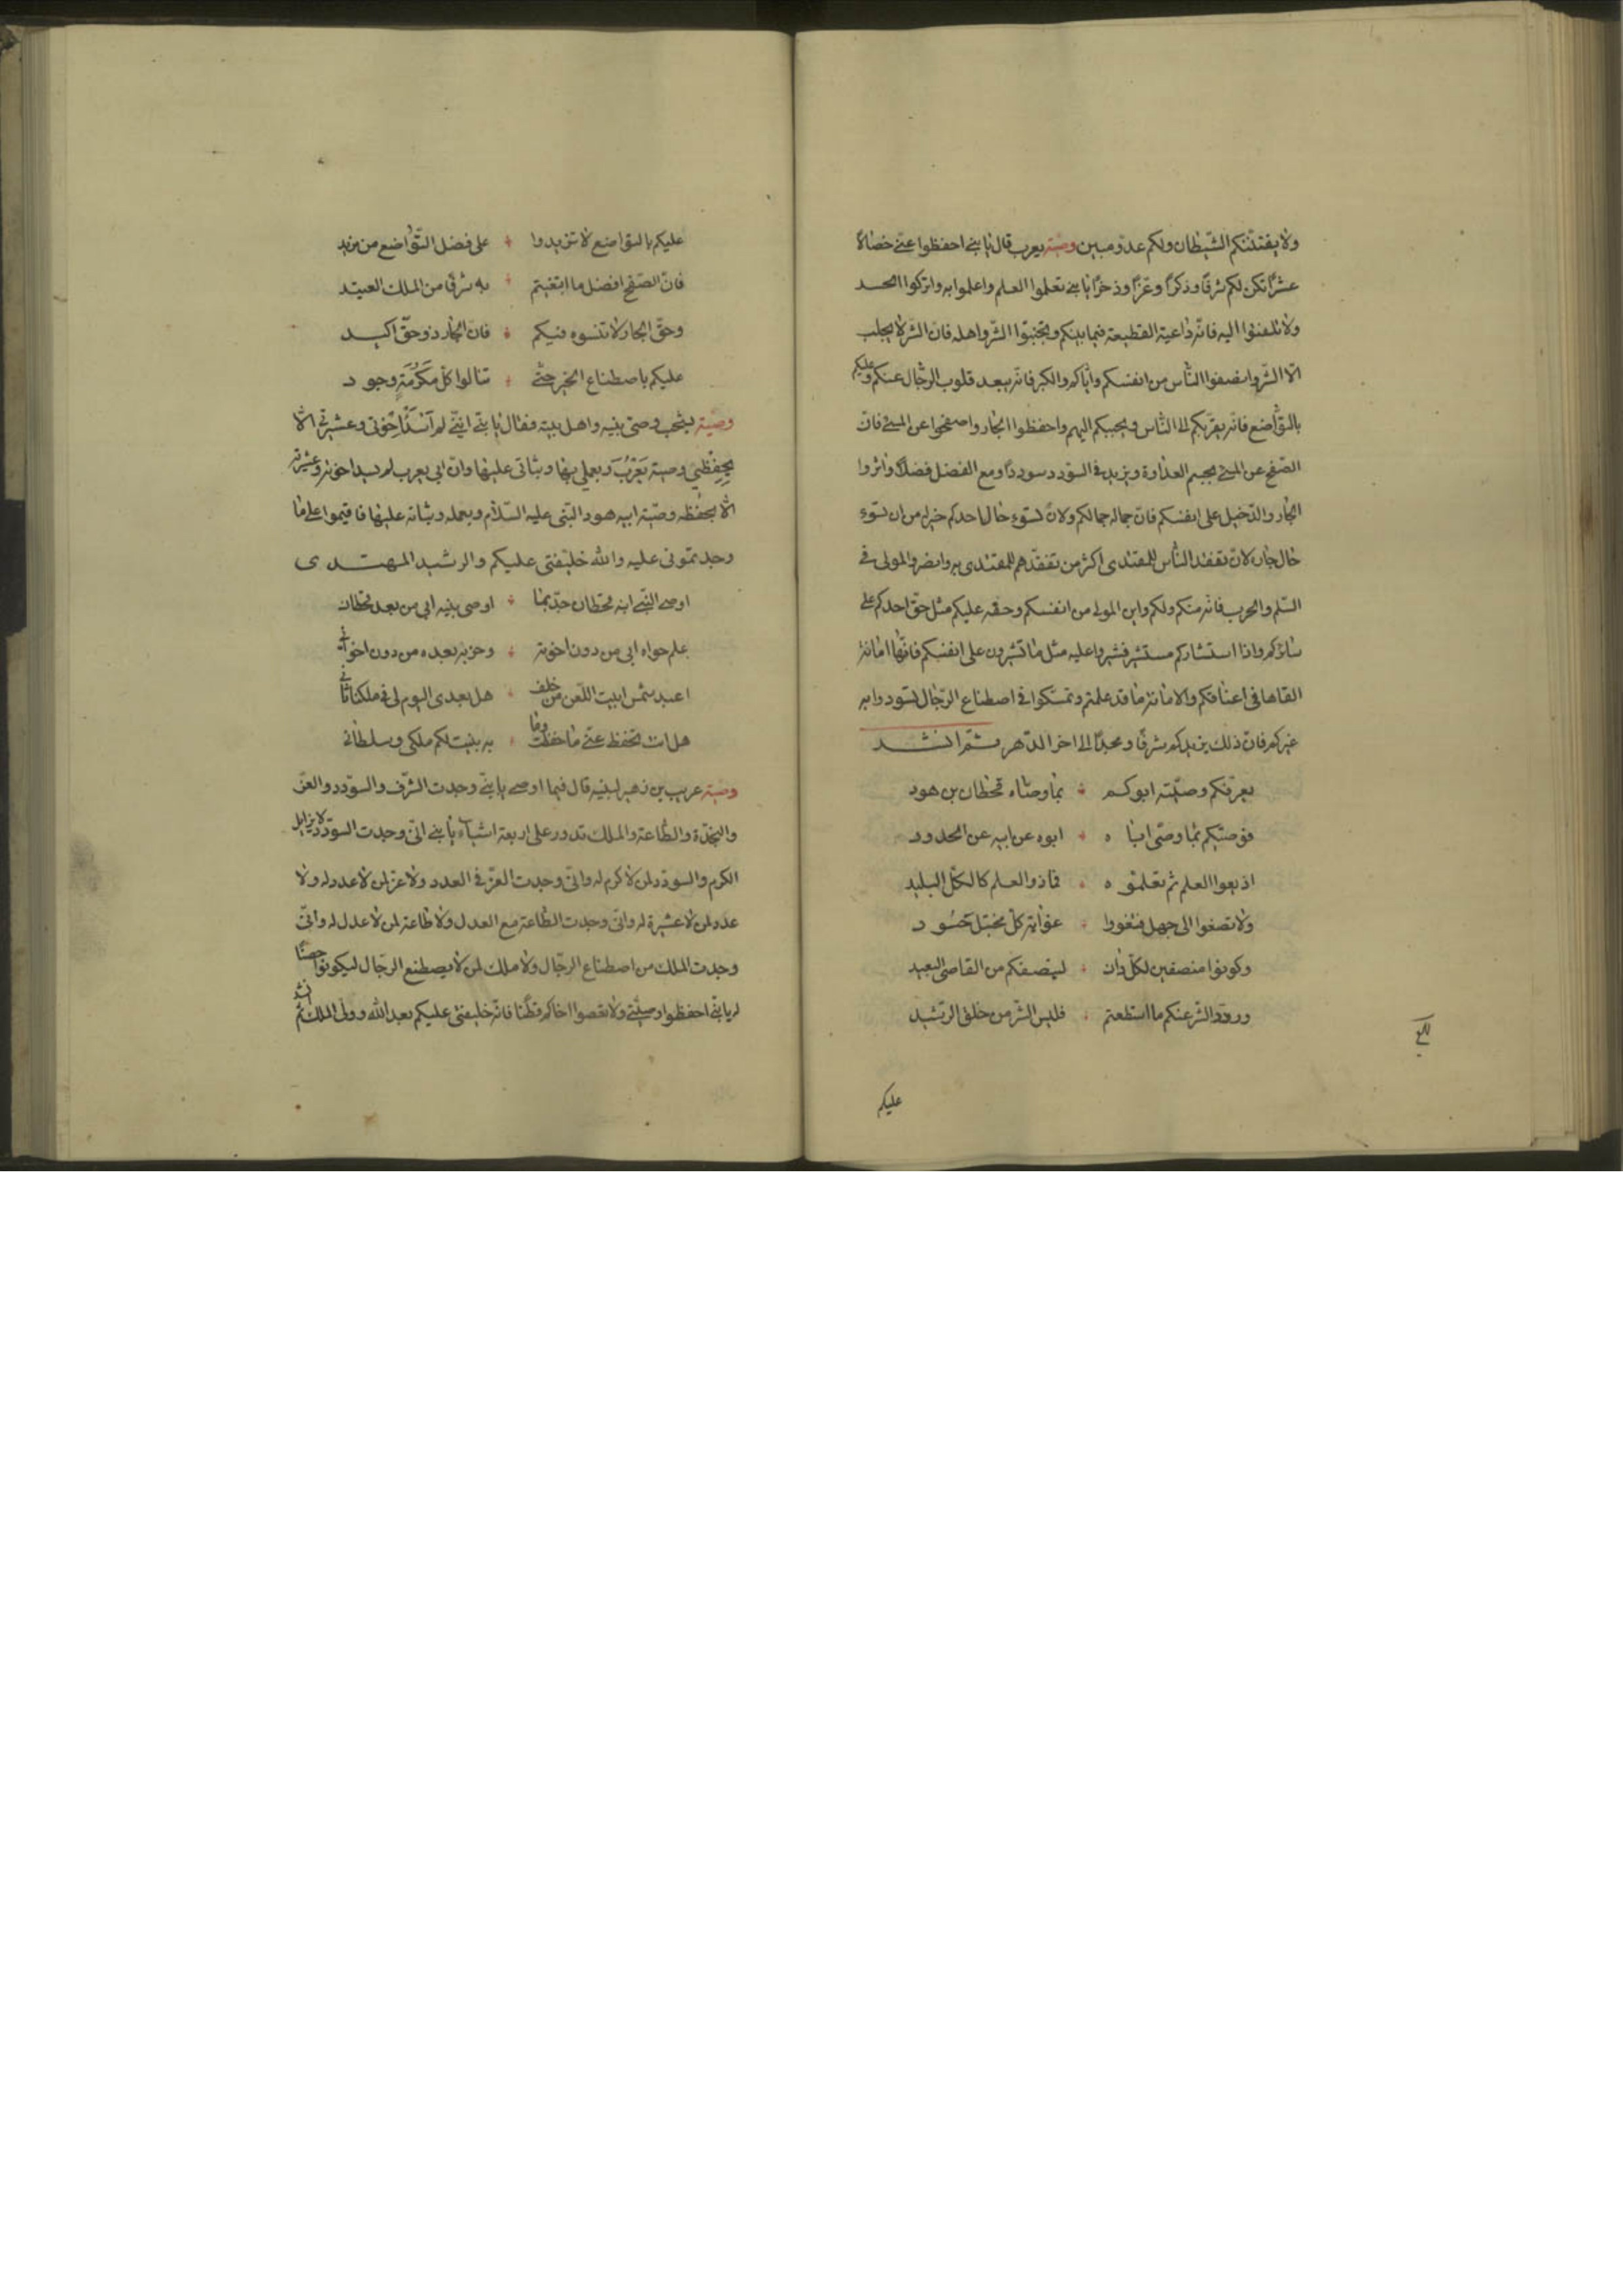 ولا يفتننكم الشيطان ولكم عدو مبين وصية يعرب قال يا بني احفظوا عني خصالا
عشرا تكن لكم شرفا وذكرا وعزا وذخرا يا بني تعلموا العلم واعلموا به واتركوا الحسد
ولا تلتفتوا اليه فانه داعية القطيعة فيما بينكم وتجنبوا الشر واهله فان الشر لا يجلب
الا الشر وانصفوا الناس من انفسكم واياكم والكبر فانه يبعد قلوب الرجال عنكم وعليكم
بالتواضع فانه يقربكم الى الناس ويحببكم اليهم واحفظوا الجار واصفحوا عن المسئ فان
الصفح عن المسئ يحسم العداوة ويزيد في السودد سوددا ومع الفضل فضلا واثروا
الجار والدخيل على انفسكم فان جماله جمالكم ولان تسوء حال احدكم خير له من ان تسوء
حال جاره لان تفقد الناس للمقتدى اكثر من تفقدهم للمقتدى به وانصروا المولى في
السلم والحرب فانه منكم ولكم وابن المولى من انفسكم وحقه عليكم مثل حق احدكم على
سائركم واذا استشاركم مستشير فشيروا عليه مثل ما تشيرون على انفسكم فانها امانة
القاها في اعناقكم والامانة ما قد علمتم وتمسكوا في اصطناع الرجال لتسودوا به
غيركم فان ذلك يزيدكم شرفا ومجدا الى اخر الدهر ثم انشد
يعرفكم وصيته ابوكم * بما وصاه قحطان بن هود
فوصيكم بما وصى ابا ه * ابوه عن ابيه عن الجدود
اذيعوا العلم ثم تعلمو ه * فما ذو العلم كالكل البليد
ولا تصغوا الى جهل فتغووا * غواية كل مختبل حسود
وكونوا منصفين لكل دان * لينصفكم من القاصي البعيد
وردوا الشر عنكم ما استطعتم * فليس الشر من خلق الرشيد
عليكم
عليكم بالتواضع لا تزيدوا * على فضل التواضع من مزيد
فان الصفح افضل ما ابتغيتم * به شرفا من الملك العتيد
وحق الجار لا تنسوه فيكم * فان الجار ذو حق اكيد
عليكم باصطناع الخير حتى * تنالوا كل مكرمة وجود
وصية يشجب وصى بنيه واهل بيته فقال يا بني انني لم اسد اخوتي وعشيرتي الا
بحفظي وصية يعرب وبعملي بها وبثباتي عليها وان ابي يعرب لم يسد اخوته وعشيرته
الا بحفظه وصية ابيه هود النبي عليه السلام وبعمله وبثباته عليها فاقيموا على ما
وجدتموني عليه والله خليفتي عليكم والرشيد المهتدى
اوصى النبي ابنه قحطان جد بما * اوصى بنيه ابي من بعد قحطان
علم حواه ابي من دون اخوته * وحزته بعده من دون اخواني
اعبد شمس ابيت اللعن من خلف * هل بعدى اليوم لي في ملكنا ثاني
هل انت تحفظ عني ما حفظت وما * به بنيت لكم ملكي وسلطاني
وصية عريب بن زهير لبنيه قال فيما اوصى يا بني وجدت الشرف والسودد والعز
والنجدة والطاعة والملك تدور على اربعة اشياء يا بني اني وجدت السودد لا يزايل
الكرم ولا سودد لمن لا كرم له واني وجدت العز في العدد ولا عز لمن لا عدد له ولا
عدد لمن لا عشيرة له واني وجدت الطاعة مع العدل ولا طاعة لمن لا عدل له واني
وجدت الملك من اصطناع الرجال ولا ملك لمن لا يصطنع الرجال ليكونوا حصنا
له يا بني احفظوا وصيتي ولا تعصوا اخاكم قطنا فانه خليفتي عليكم بعد الله وولى الملك ثم انشد